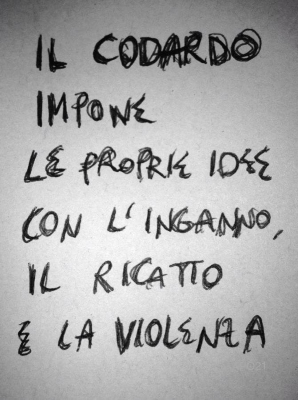 IL CODARDO
IMPONE
LE PROPRIE IDEE
CON L'INGANNO,
IL RICATTO
E LA VIOLENZA